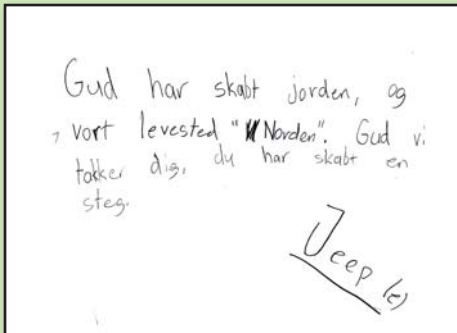 Gud har skabt jorden, og
vort levested "Norden". Gud vi
takker dig, du har skabt en
steg.
Jeep (e)